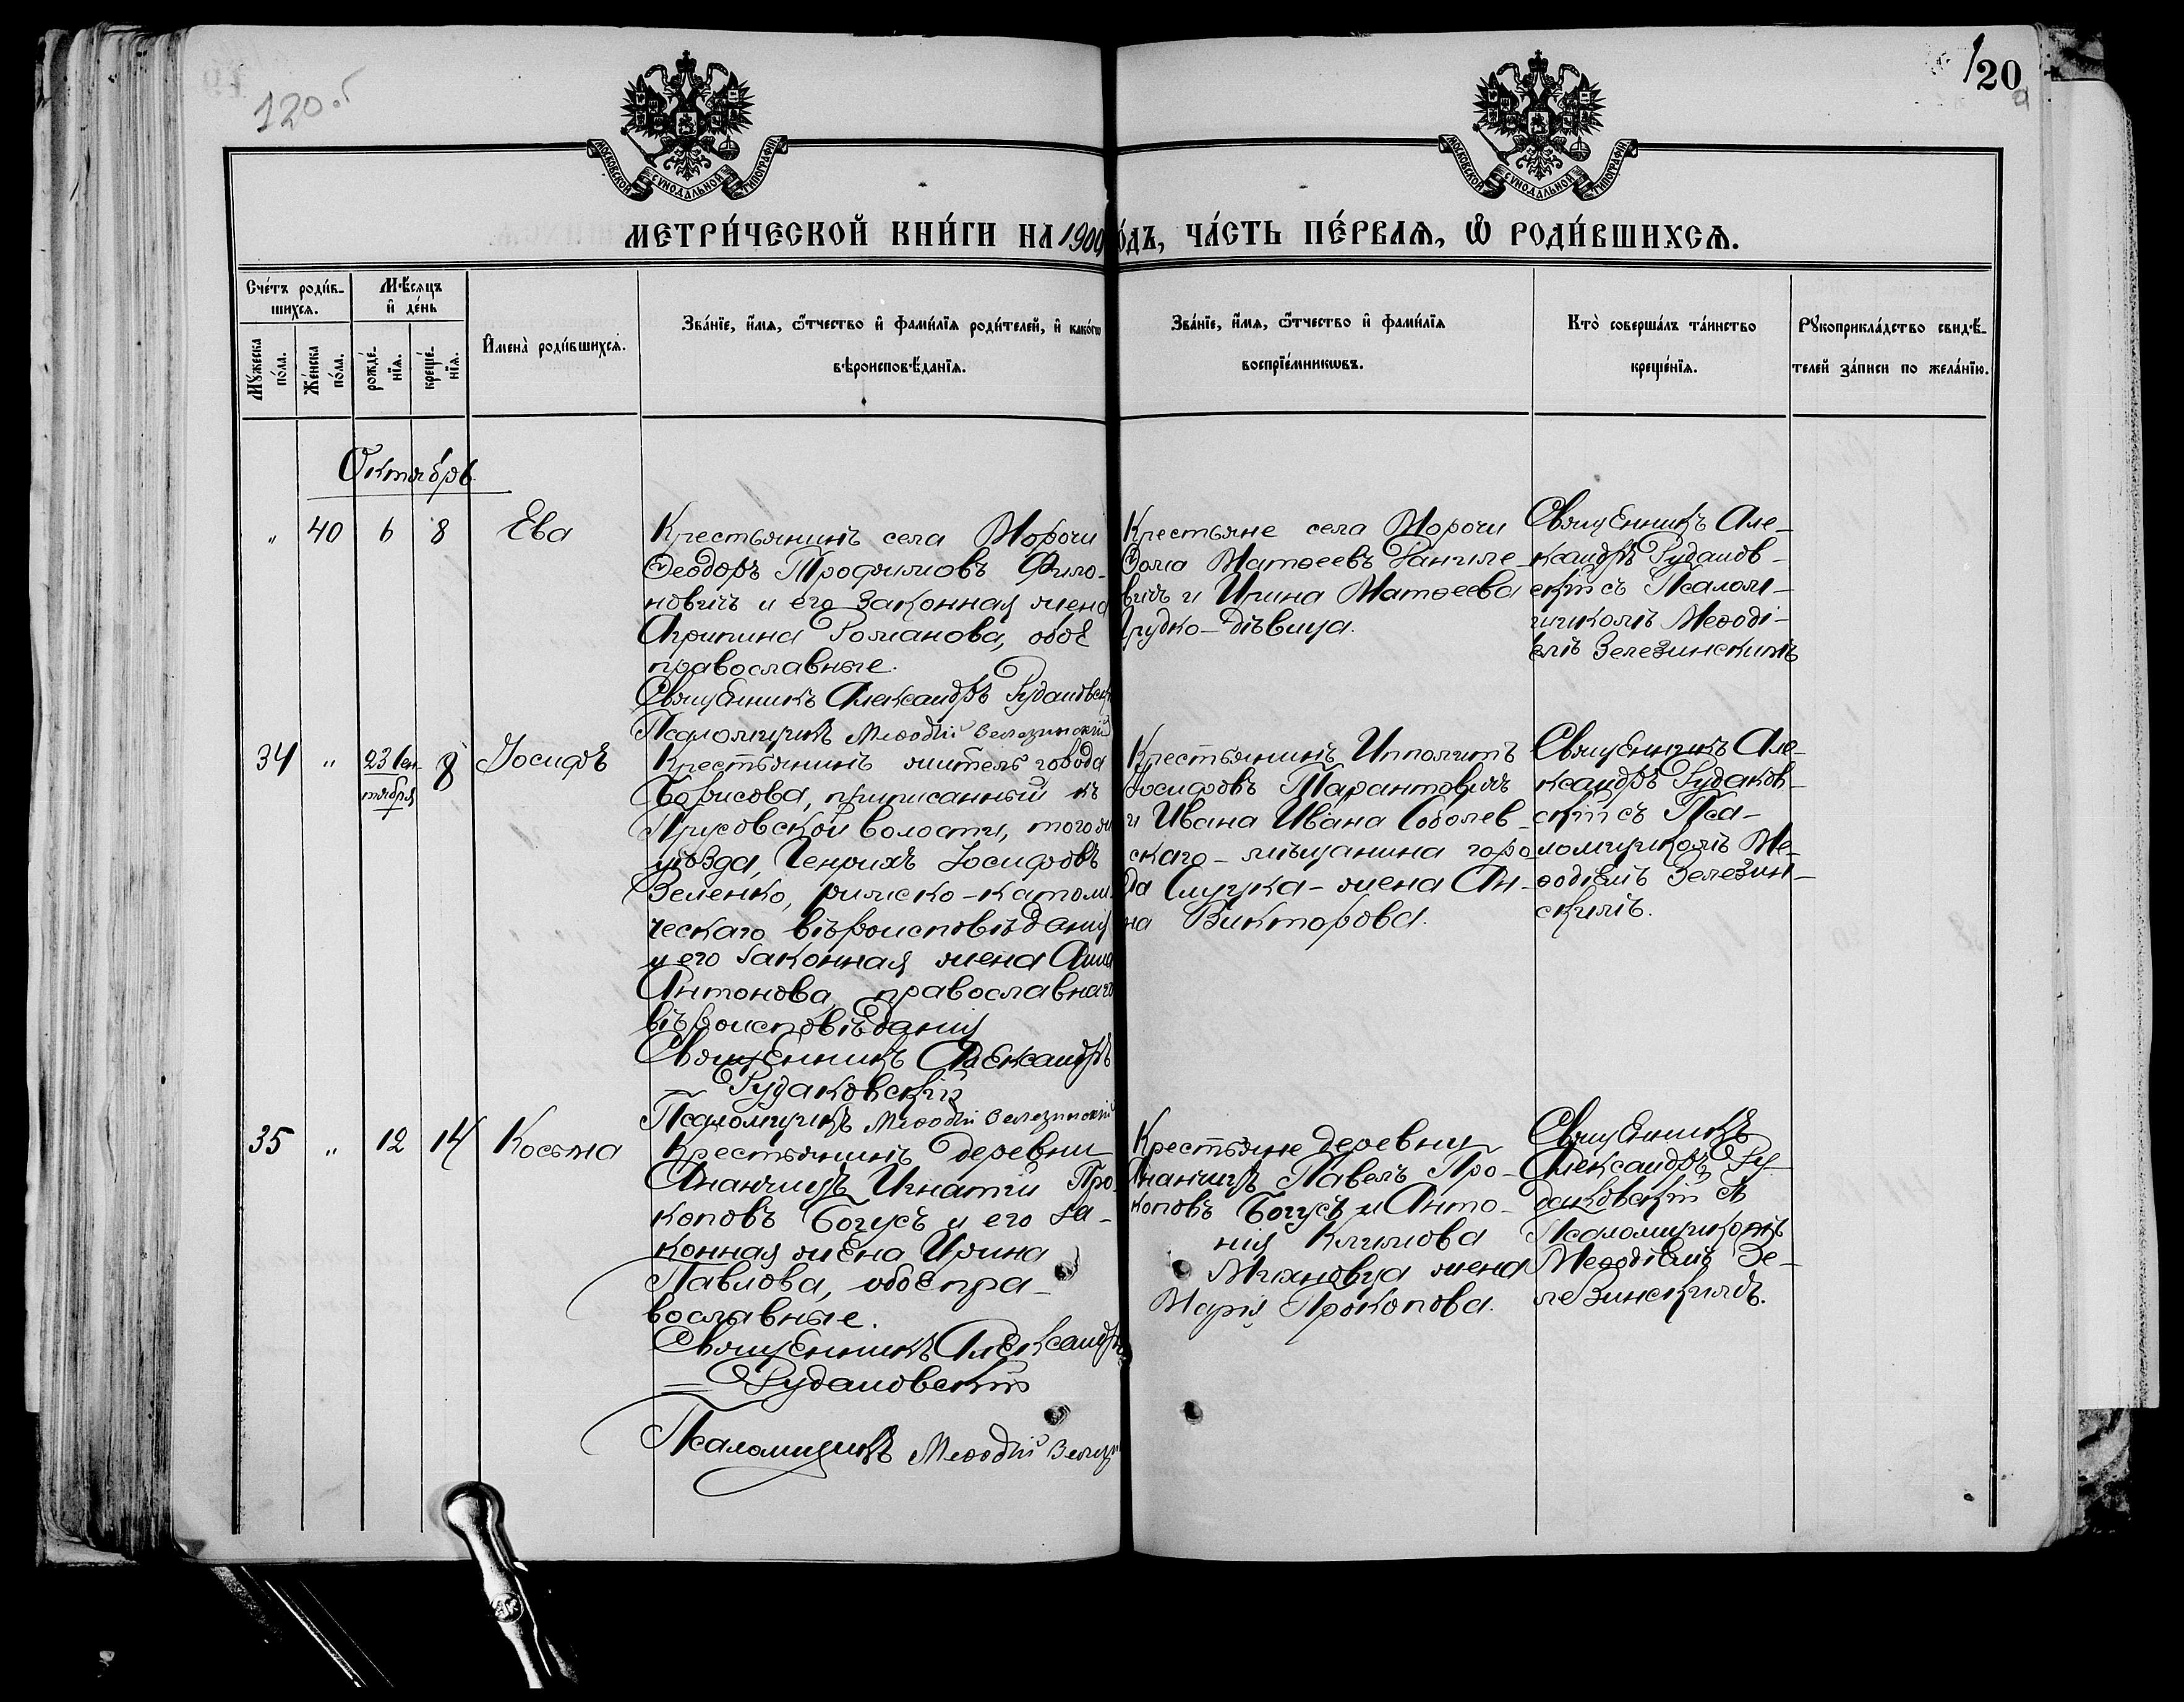 120 об
120
а
МОСКОВСКОЙ СУНОДАЛЬНОЙ ТИПОГРАФІИ
МОСКОВСКОЙ СУНОДАЛЬНОЙ ТИПОГРАФІИ
МЕТРИ́ЧЕСКОЙ КНИ́ГИ НА 1900 ГО́ДЪ, ЧА́СТЬ ПЕ́РВАЯ, Ѡ РОДИ́ВШИХСЯ.
Сче́тъ роди́в-
шихся.
Мѣ́сяцъ
и де́нь
Му́жеска
по́ла.
Же́нска
по́ла.
рожде́-
нїя.
креще́-
нїя.
Имена̀ роди́вшихся.
Зва́нїе, и́мя, ѻ́тчество и фами́лїя роди́телей, и како́гѡ
вѣроисповѣ́данїя.
Зва́нїе, и́мя, ѻ́тчество и фами́лїя
воспрїе́мникѡвъ.
Кто̀ соверша́лъ та́инство
креще́нїя.
Рꙋкоприкла́дство свидѣ́-
телей за́писи по жела́нїю.
Октябрь
" 40 6 8 Ева
Крестьянинъ села Морочи
Ѳеодоръ Трофимовъ Фило-
новичъ и его законная жена
Агрипина Романова, обоє
православные.
Священникъ Александръ Рудаковск
Псаломщикъ Меѳодій Зелезинскій
Крестьяне села Морочи
Ѳома Матѳеевъ Даниле-
вичъ и Ирина Матѳеева
Грудко - дѣвица.
Священникъ Але-
ксандръ Рудаков-
скій съ Псалом-
щикомъ Меѳоді-
емъ Зелезинскимъ
34 " 23 Сен-
тября 8 Іосифъ
Крестьянинъ житель города
Борисова, приписанный къ
Прусовской волости, того же
уѣзда, Генрихъ Іосифовъ
Зеленко, римско-католи-
ческаго вѣроисповѣданія
и его законная жена Анна
Антонова, православнаго
вѣроисповѣданія
Священникъ Александръ
Рудаковскій
Псаломщикъ Меѳодій Зелезинскій
Крестьянинъ Ипполитъ
Іосифовъ Тарантовичъ
и Ивана Ивана Соболев-
скаго - мѣщанина горо-
да Слуцка - жена Ан-
на Викторова.
Священникъ Але-
ксандръ Рудаков-
скій съ Пса-
ломщикомъ Ме-
ѳодіемъ Зелезин-
скимъ.
35 " 12 14 Косьма
Крестьянинъ деревни
Ананчицъ Игнатій Про-
коповъ Богусъ и его за-
конная жена Ирина
Павлова, обоє пра-
вославные.
Священникъ Александръ
Рудаковскій
Псаломщикъ Меѳодій Зелез
Крестьяне деревни
Ананчицъ Павелъ Про-
коповъ Богусъ и Анто-
нія Климова
жена
Марія Прокопова.
Священникъ
Александръ Ру-
даковскій съ
Псаломщикомъ
Меѳодіемъ Зе-
лезинскимъ.